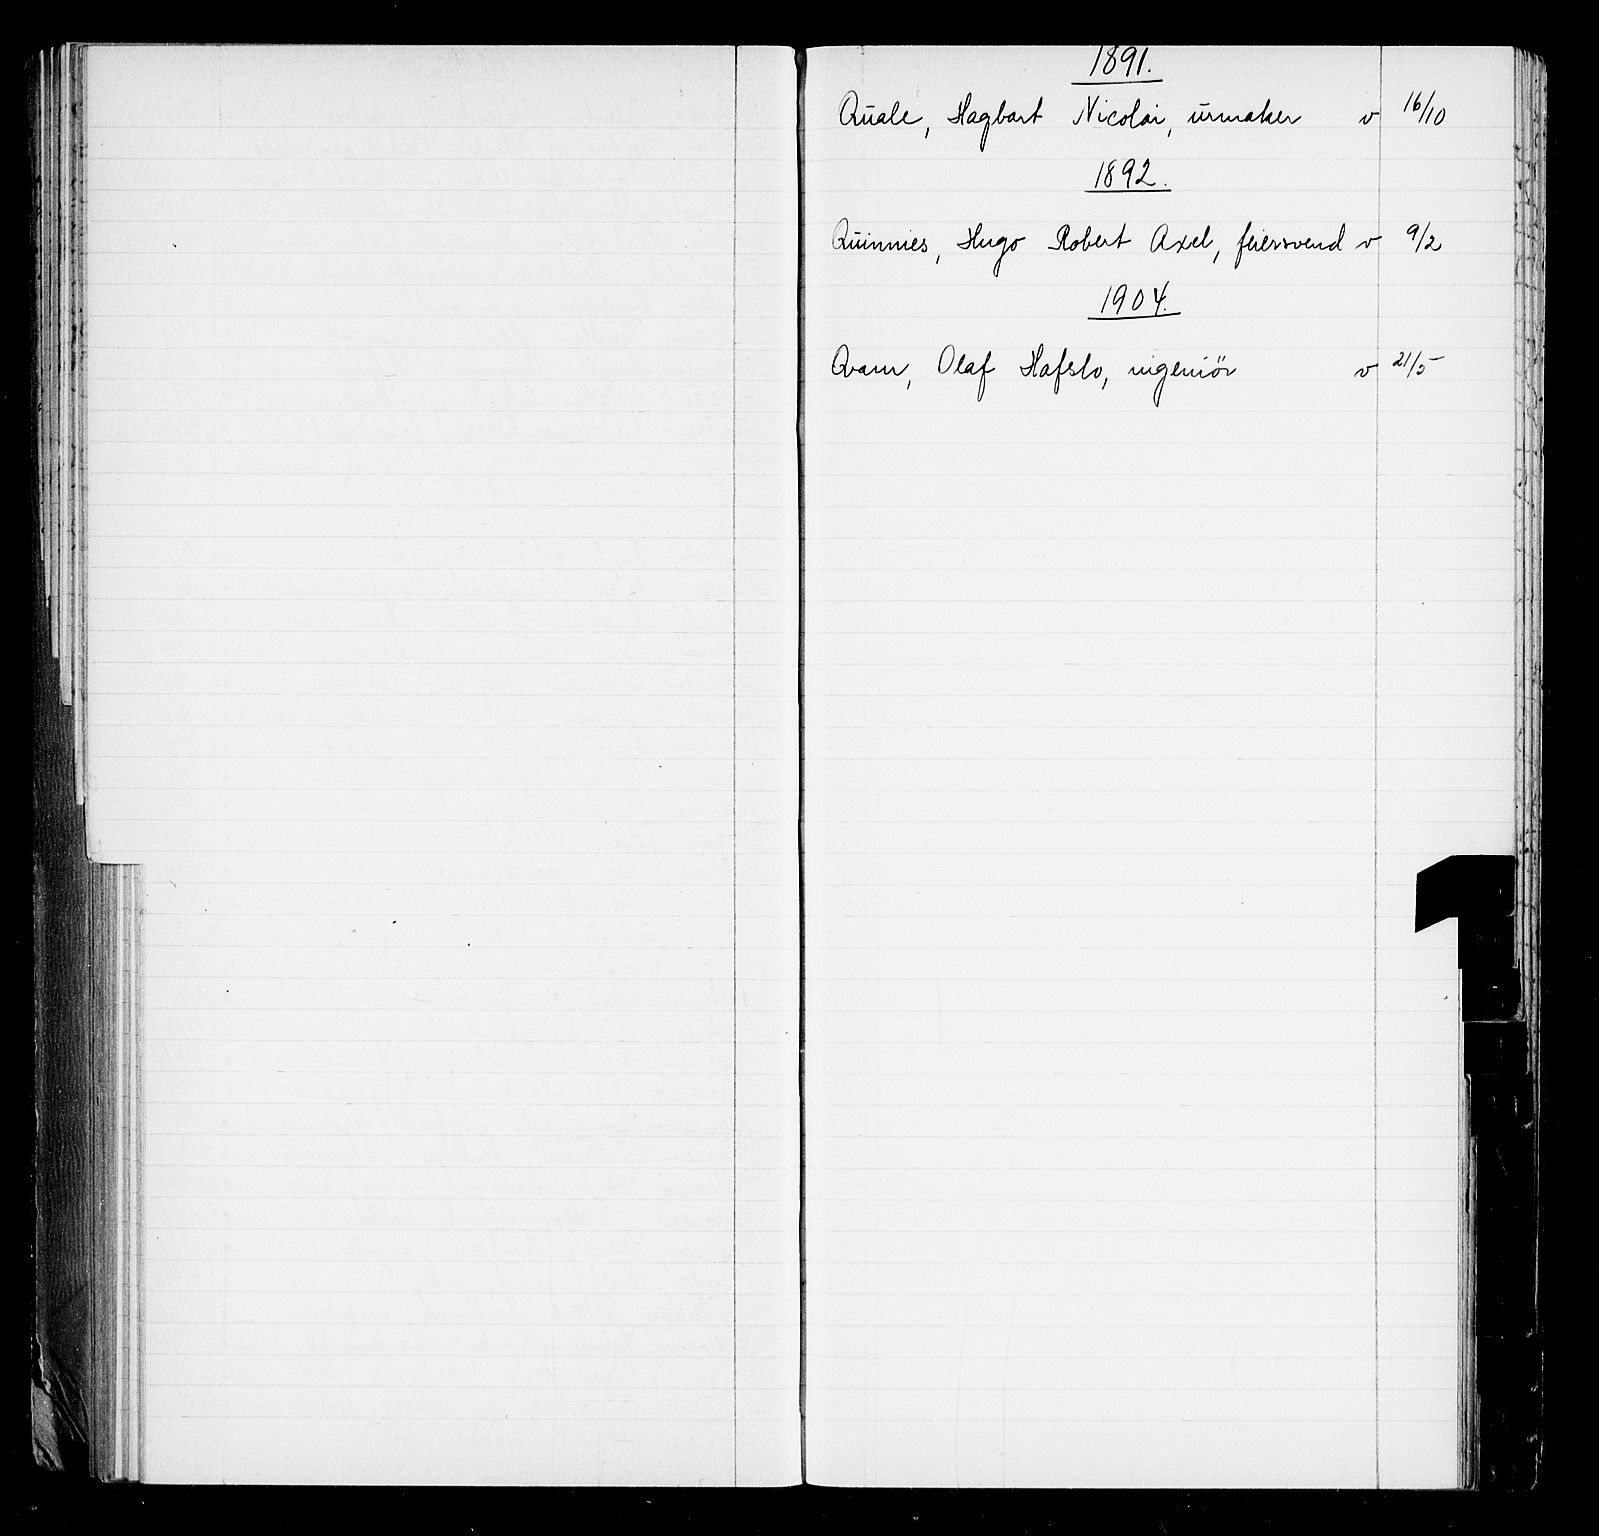 1891.
Quale, Hagbart Nicolai, urmaker v 16/10
1892.
Quinnies, Hugo Robert Axel, feiersvend v 9/2
1904.
Qvam, Olaf Hafslo, ingeniör v 21/5